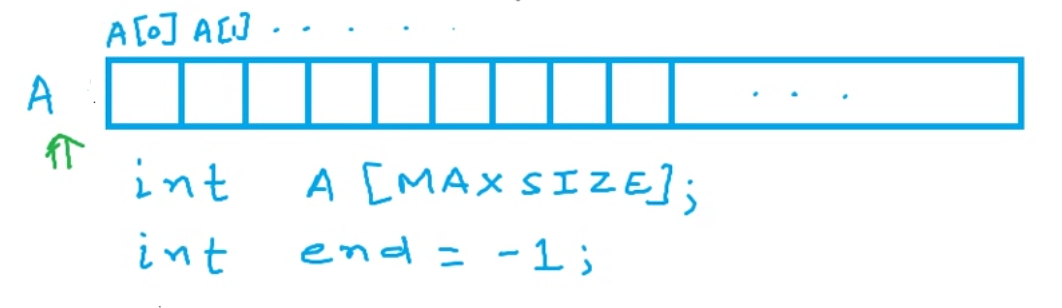 A[0] A[1] . . . . .
A . . .
int A [MAXSIZE];
int end = -1;